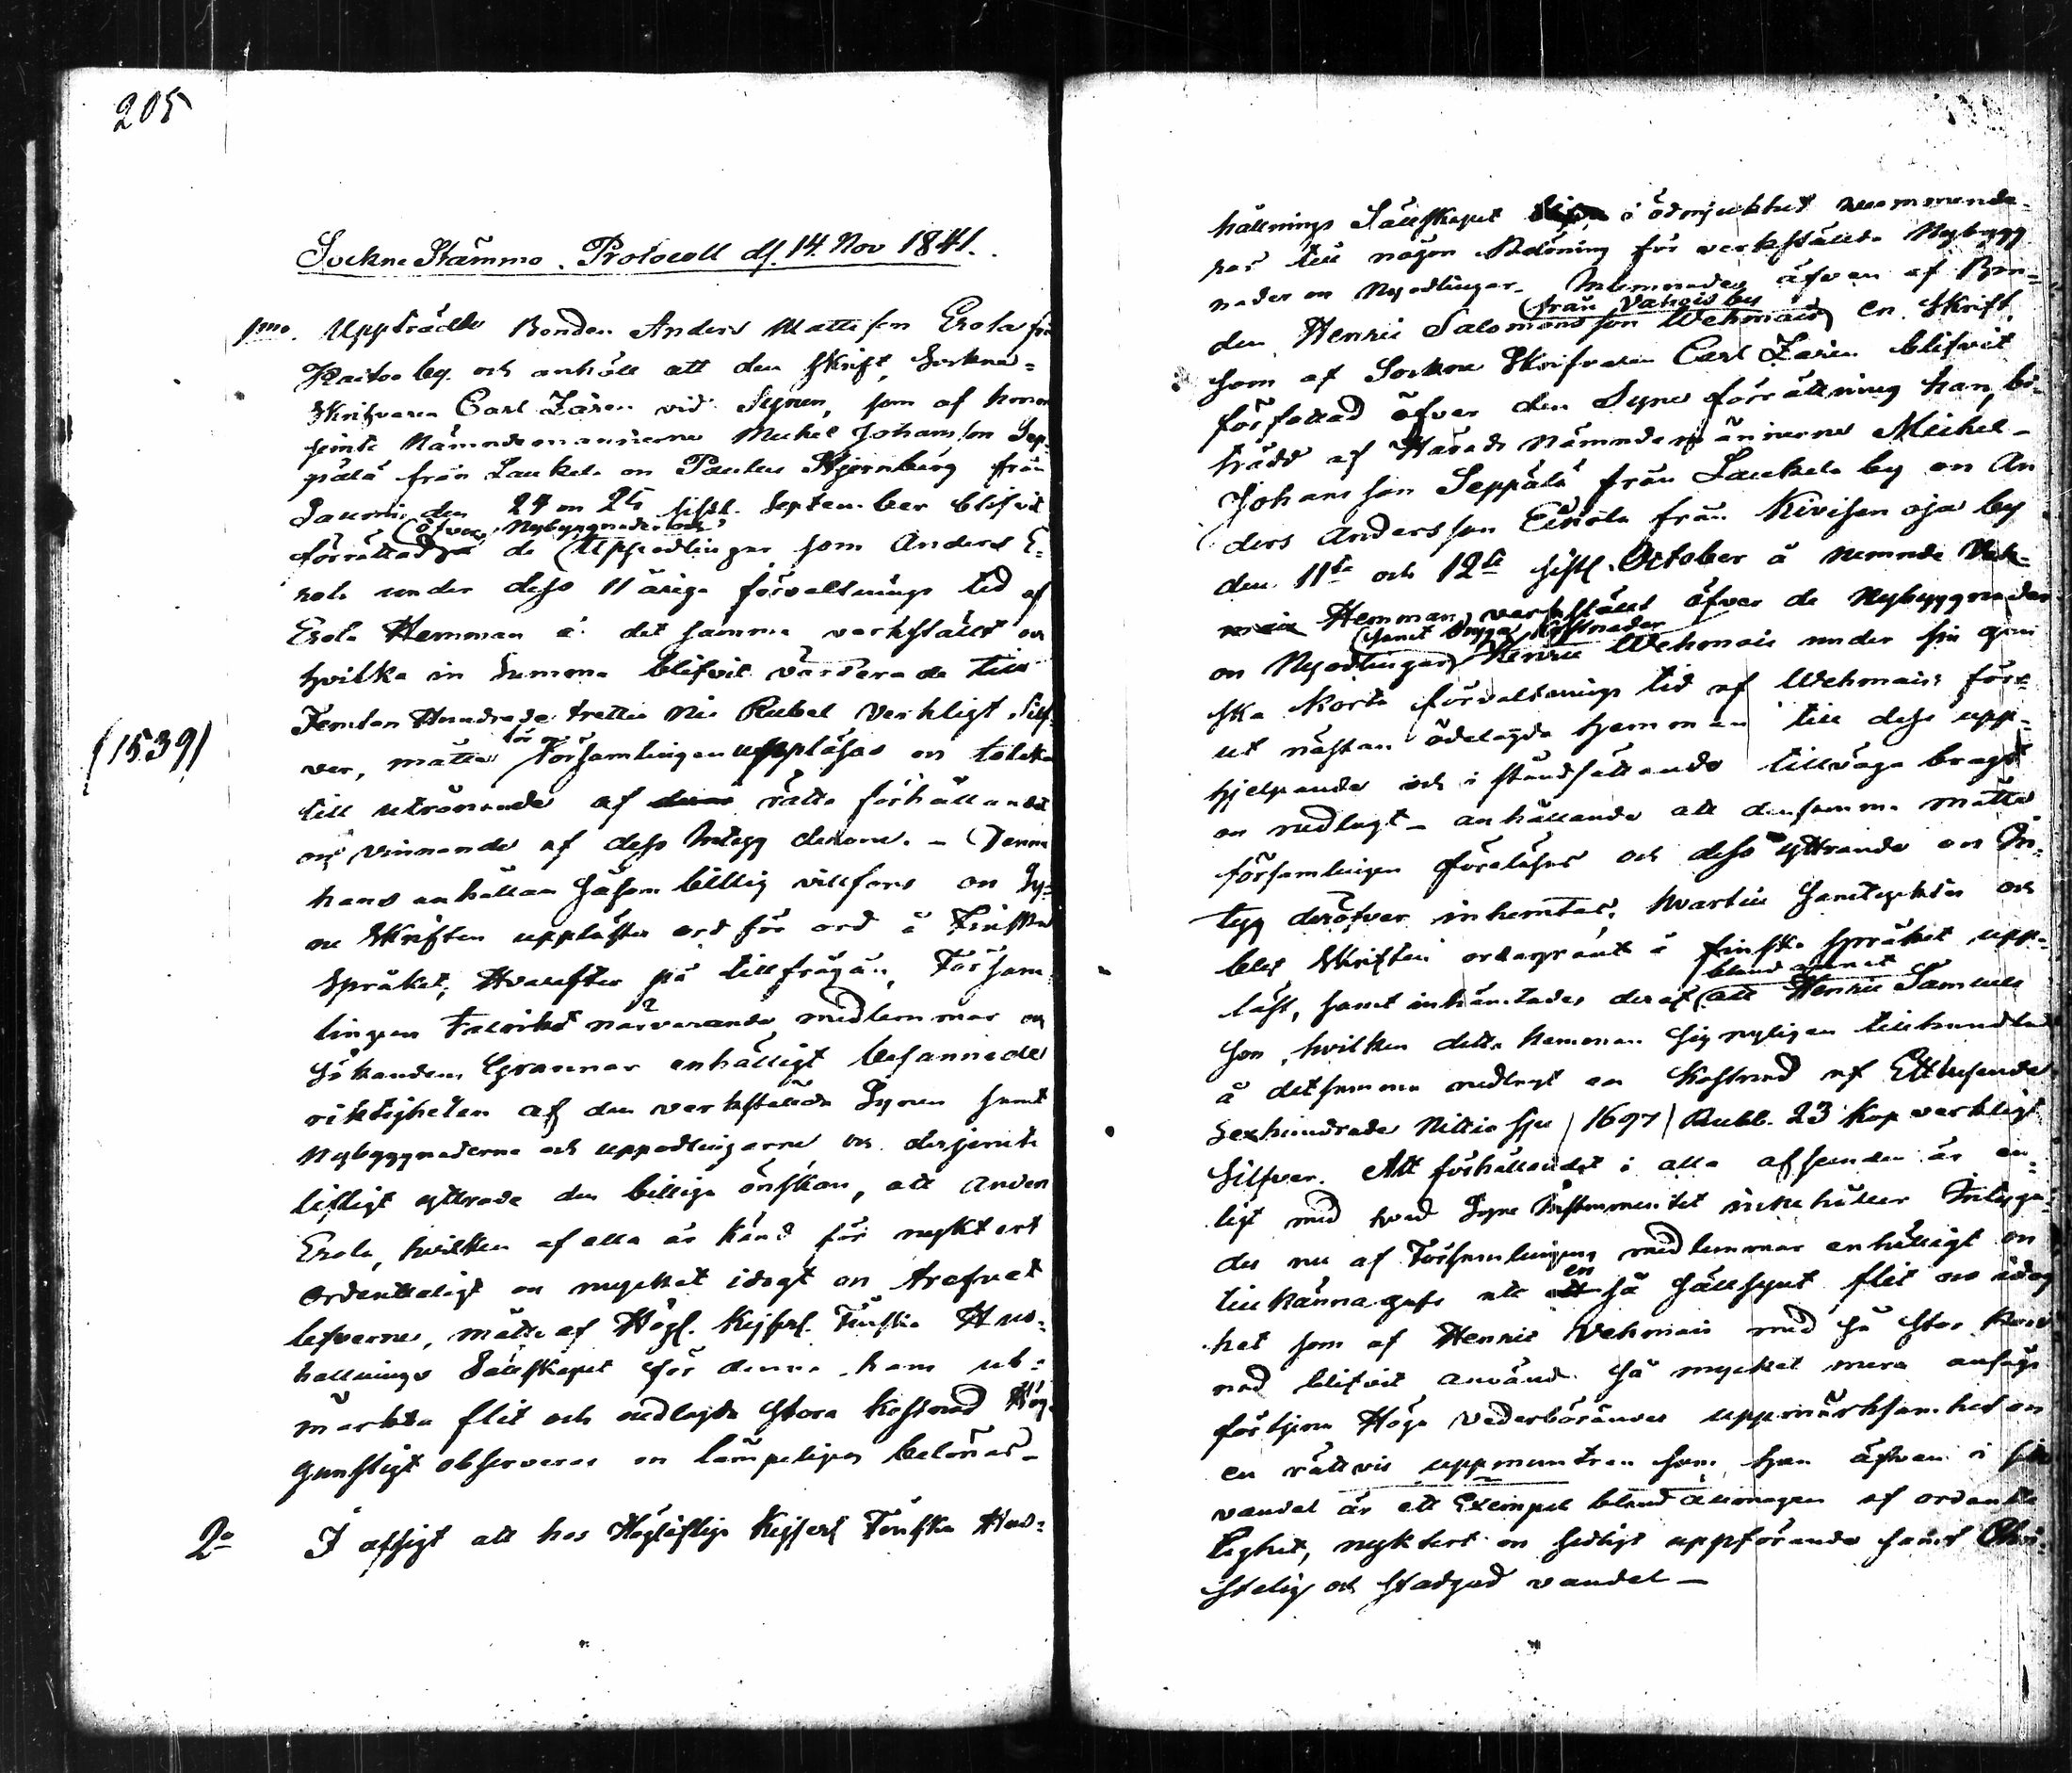 205
Sockne Stämmo Protocoll d. 14. Nov 1841.
1mo. Uppträdde Bonden Anders Mattsson Erola frå
Raitoo by och anhöll att den Skrift, Sockne-
Skrifvaren Carl Zaren vid Synen, som af honom
jemte Nämndemännerne Mickel Johansson Sep-
pälä från Laukela on Paulus Björnberg från
den 24 on 25 sistl. September blifvit
(öfver Nybyggnader och
förrättad de Uppodlingar som Anders E-
rola under dess 11 årige förvaltnings tid af
Erola Hemman å det samma verkställt on
hvilka in summa blifvit värderade till
Femton Hundrade trettio Nio Rubel Verkligt Silf-
(1539)
för
ver, måtte Församlingen uppläsas on tolkas
till utrönande af rätta förhållandet
on vinnande af dess Intyg derom. – Denna
hans anhållan såsom billig villfors on Sy-
ne Skriften upplästes ord för ord å Finska
Språket, Hvarefter på tillfrågan, Försam-
lingens talrikt närvarande medlemmar on
Sökandens Grannar enhälligt besannade
riktigheten af den verkstälde Synen samt
Nybyggnaderne och uppodlingarne on derjemte
lifligt yttrade den billiga önskan, att Anders
Erola, hvilken af alla är känd för nyktert
ordentteligt on mycket idogt on strefvet
lefverne, måtte af Högl. Kejserl. Finska Hus-
hållnings Sällskapet för denna hans ut-
märkta flit och nedlagda stora Kostnad Hög-
gunstigt observeras on lämpeligen belönas –
2o I afsigt att hos Höglöflige Kejserl Finska Hus-
hållnings Sällskapet i ödmjukhet recommende-
ras till någon Belöning för verkställda Nybygg
nader on Nyodlingar, Inlemnades äfven af Bon-
(från Vahois by
den Henric Salomonsson Wehmais) en Skrift,
som af Sockne Skrifvaren Carl Zaren blifvit
författad öfver den Syne förrättning han, bi-
trädd af Härads Nämndemännerne Mickel
Johansson Seppälä från Laukela by on An
ders Andersson Eirola från Kivisenoja by
den 11te och 12te sistl. October å nemnde Weh-
mais Hemman, verkställt öfver de Nybyggnader
(samt Kostnader
on Nyodlingar) Henric Wehmais under sin gan
ska korta förvaltnings tid af Wehmais för-
ut nästan ödelagda hemman till dess upp-
hjelpande och i ståndsättande tillväga bragt
on nedlagt – anhållande att densamma måtte
församlingen föreläsas och dess yttrande on In-
tyg deröfver inhemtas, hvartill samtycktes och
blef Skriften ordagrant å finska språket upp-
bland annat
läst, samt inhämtades deraf att Henric Samuels
son, hvilken detta hemman sig nyligen tillhandlat
å detsamma nedlagt en Kostnad af Ett tusende
Sexhundrade Nittio sju (1697) Rubl. 23 Kop verkligt
Silfver. Att förhållandet i alla afseenden är en-
ligt med hvad Syne Instrumentet innehåller Intyga-
des nu af Församlingens medlemmar enhälligt on
en
tillkännagafs att så sällsynt flit on idog
het som af Henric Vehmais med så stor Kost
nad blifvit använd så mycket mera ansågs
förtjena Höga Vederbörandes uppmärksamhet on
en rättvis uppmuntran som han äfven i sin
vandel är ett Exempel bland allmogen af ordentte
lighet, nyktert on sedligt uppförande samt Chri-
stelig och stadgad vandel –